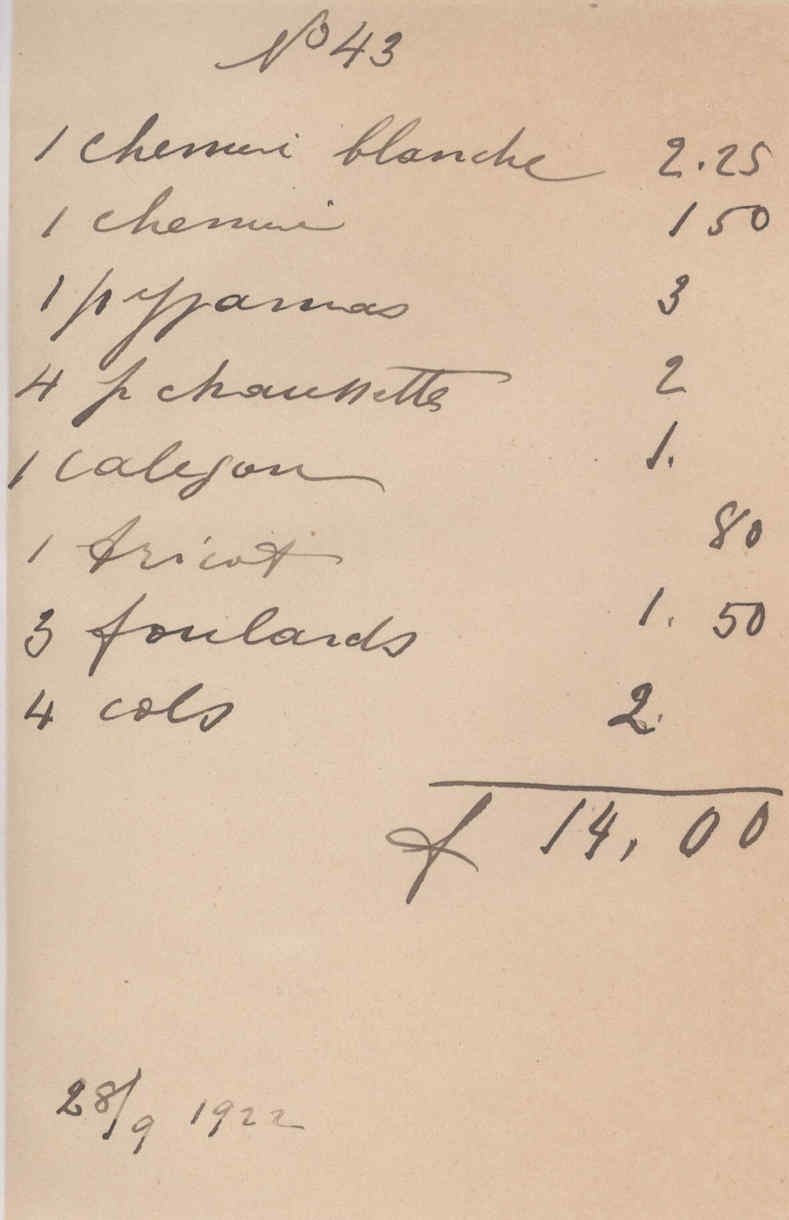 No 43
1 chemui blanche 2.25
1 chemui 1 50
1 pyjamas 3
4 p chaussettes 2
1 caleçon 1.
1 tricot 80
3 foulards 1. 50
4 cols 2.
f 14,00
28/9 1922